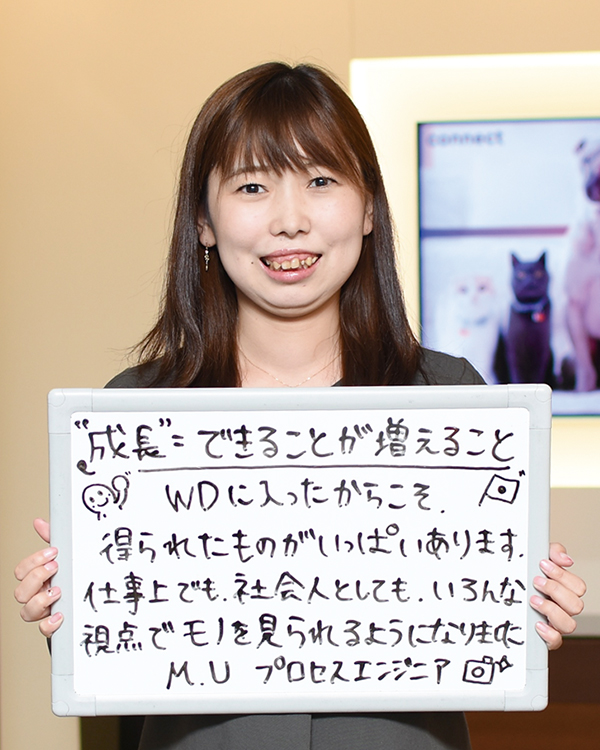 connect
"成長"=できることが増えること
WDに入ったからこそ、
得られたものがいっぱいあります。
仕事上でも、社会人としても、いろんな
視点でモノを見られるようになりました
M.U プロセスエンジニア